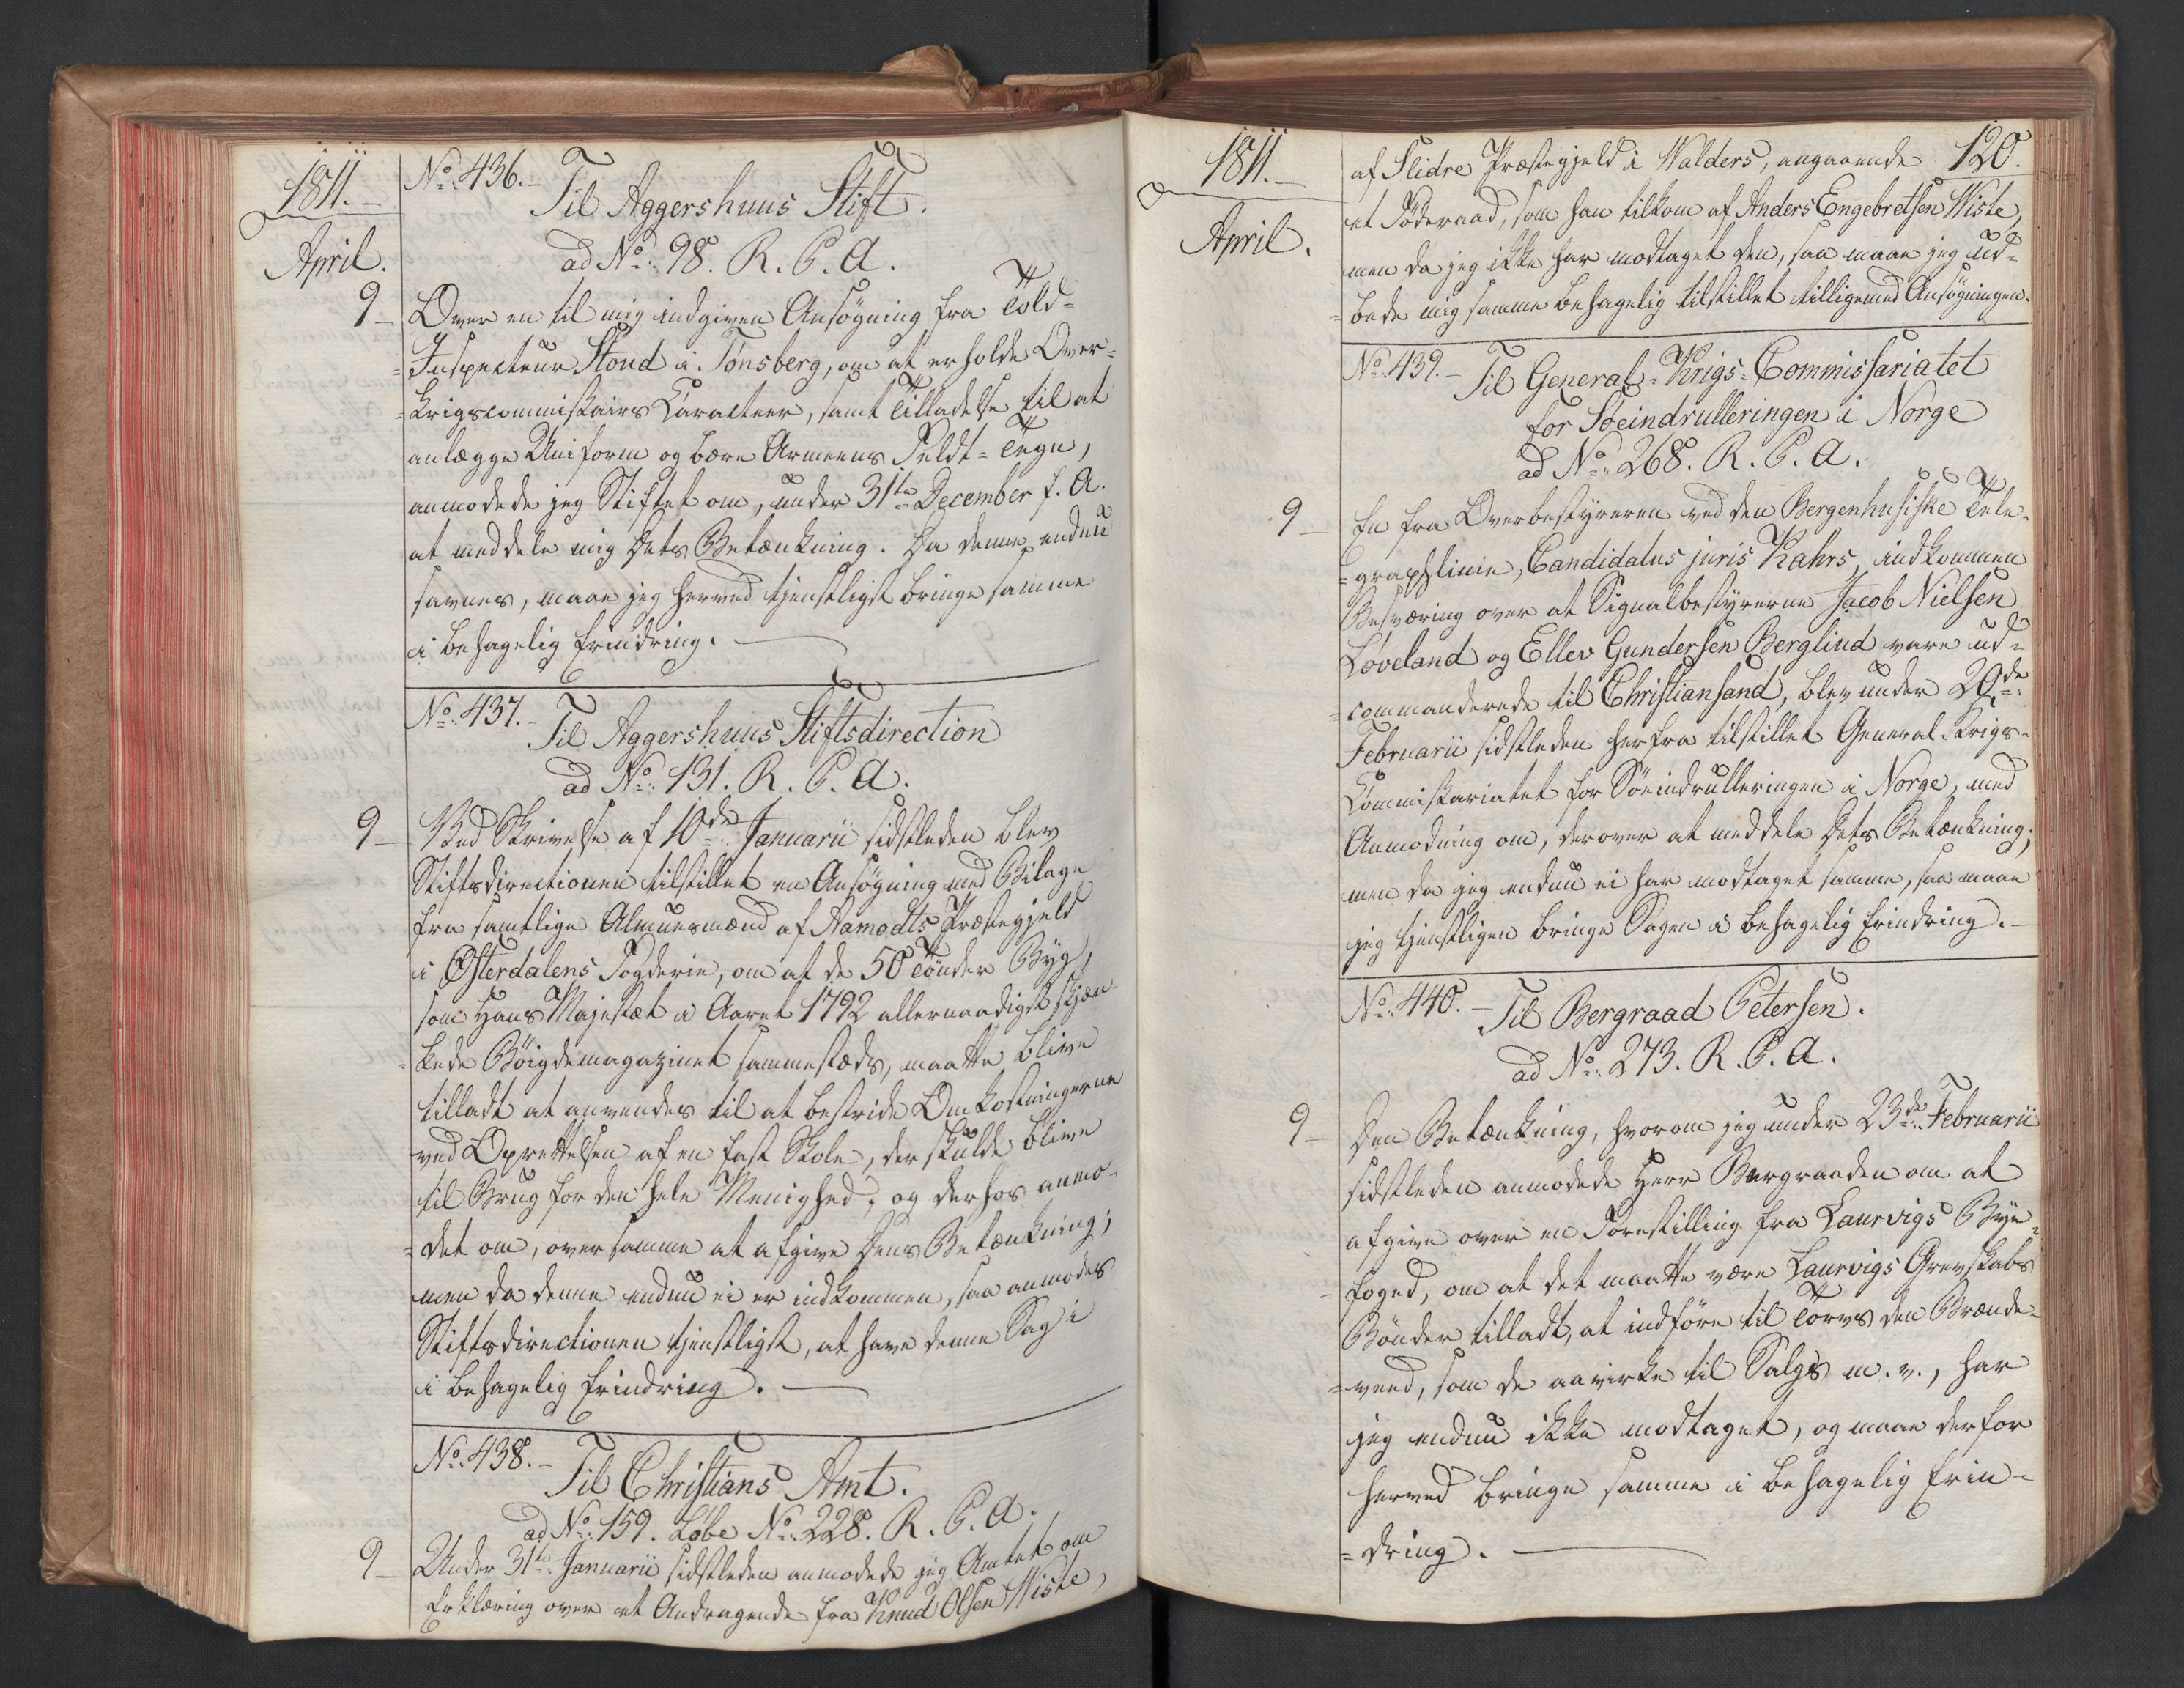 1811.
April.
No: 436. –
Til Aggershuus Stift.
ad No: 98. R. C. A.
9 –
Over en til mig indgiven Ansøgning fra Told-
=Inspecteur Stoud i Tønsberg, om at erholde Over-
=krigscommissairs Caracteer, samt Tilladelse til at
anlægge Uniform og bære Armeens Feldt-Tegn,
anmodede jeg Stiftet om, under 31te December f. A.
at meddele mig Dets Betænkning. Da denne endnu
savnes, maae jeg herved tjenstligst bringe samme
i behagelig Erindring.
No: 437. –
Til Aggershuus Stiftsdirection
ad No: 131. R. C. A.
9 –
Ved Skrivelse af 10de Januarii sidstleden blev
Stiftsdirectionen tilstillet en Ansøgning med Bilage
fra samtlige Almuesmænd af Aamodts Præstegjeld
i Østerdalens Fogderie, om at de 50 Tønder Byg,
som Hans Majestæt i Aaret 1792 allernaadigst skjæn-
=kede Bøigdemagazinet sammestæds, maatte blive
tilladt at anvendes til at bestride Omkostningerne
ved Oprettelsen af en fast Skole, der skulde blive
til Brug for den hele Menighed, og derhos anmo-
=det om, over samme at afgive Dens Betænkning;
men da denne endnu ei er indkommen, saa anmodes
Stiftsdirectionen tjenstligst, at have denne Sag i
i behagelig Erindring.
No: 438. –
Til Christians Amt.
ad No: 159. Løbe No: 228. R. C. A.
9 –
Under 31te Januarii sidstleden anmodede jeg Amtet om
Erklæring over et Andragende fra Knud Olsen Wiste,
1811. –
April.
120.
af Slidre Præstegjeld i Walders, angaaende
et Föderaad, som han tilkom af Anders Engebretsen Wiste,
men da jeg ikke har modtaget den, saa maae jeg ud-
=bede mig samme behagelig tilstillet tilligemed Ansøgningen.
No: 439. –
Til General-Krigs-Commissariatet
for Søeindrulleringen i Norge
ad No: 268. R. C. A.
9 –
En fra Overbestyreren ved den Bergenhusiske Tele-
=graphlinie, Candidatus juris Kahrs, indkommen
Besværing over at Signalbestyrerne Jacob Nielsen
Løveland og Ellev Gundersen Berglind vare ud-
=commanderede til Christiansand, blev under 20de
Februarii sidstleden herfra tilstillet General-Krigs-
Commissariatet for Söeindrulleringen i Norge, med
Anmodning om, derover at meddele Dets Betænkning;
men da jeg endnu ei har modtaget samme, saa maae
jeg tjenstligen bringe Sagen i behagelig Erindring. –
No: 440. –
Til Bergraad Petersen.
ad No: 273. R. C. A.
9 –
Den Betænkning, hvorom jeg under 23de Februarii
sidstleden anmodede Herr Bergraaden om at
afgive over en Forestilling fra Laurvigs Bye-
=foged, om at det maatte være Laurvigs Grevskabs
Bønder tilladt, at indføre til Torvs den Brænde-
=veed, som de aavirke til Salgs m. v., har
jeg endnu ikke modtaget, og maae derfor
herved bringe samme i behagelig Erin-
=dring.